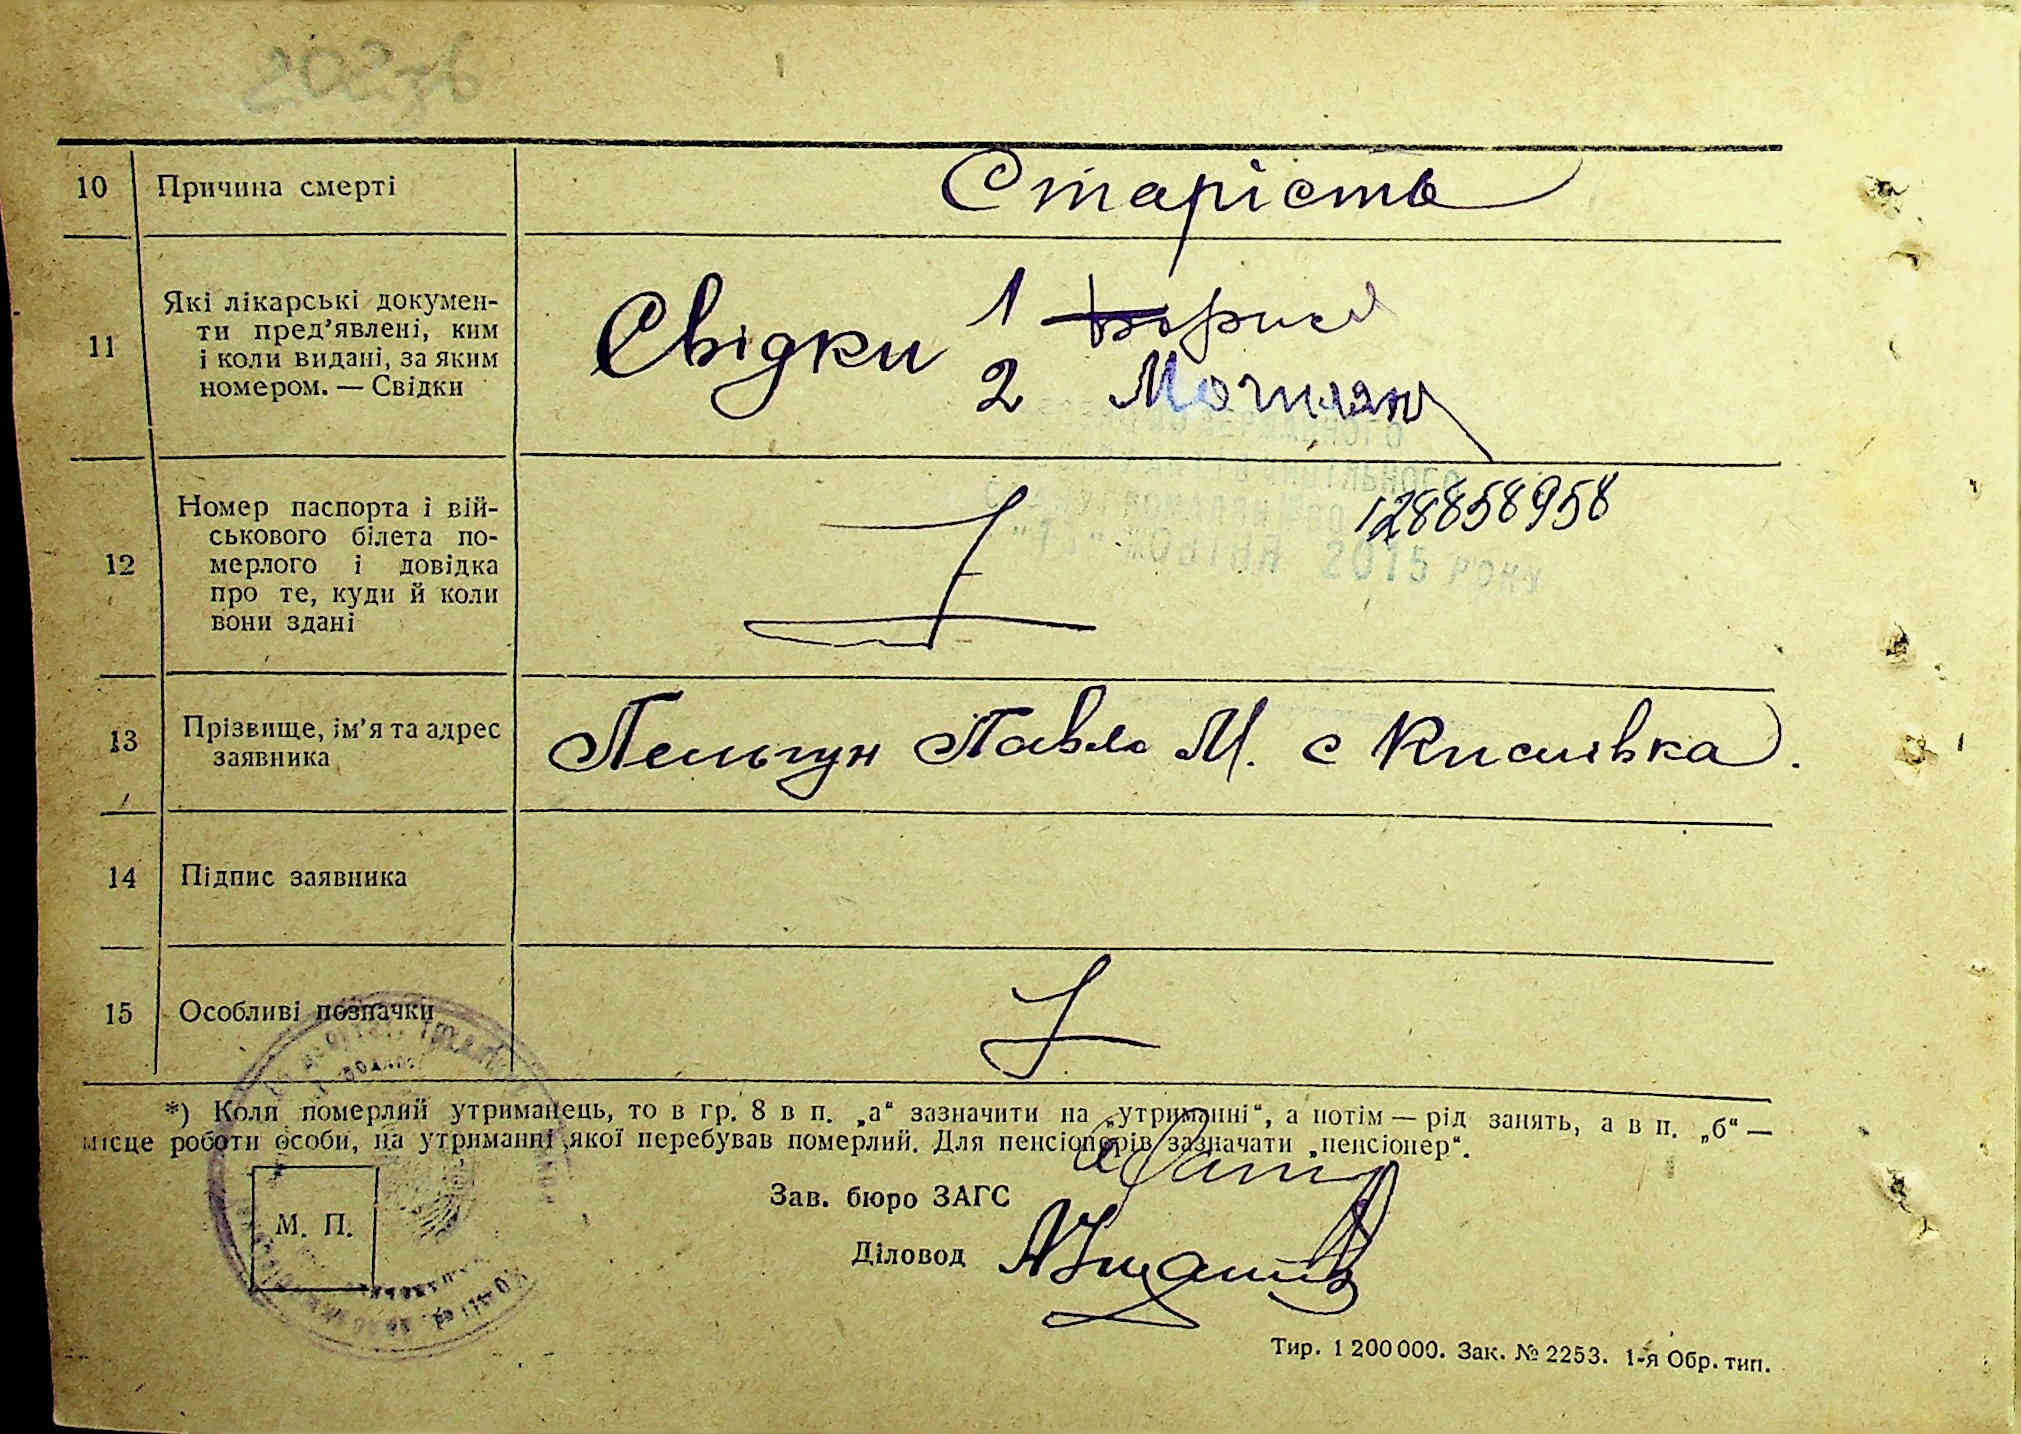 10 Причина смерті Старість
11 Які лікарські докумен-
ти пред’явлені, ким
і коли видані, за яким
номером. — Свідки
Свідки 1
2
12 Номер паспорта і вій-
ськового білета по-
мерлого і довідка
про те, куди й коли
вони здані
128858958
ЖОВТНЯ 2015 РОКУ
13 Прізвище, ім’я та адрес
заявника
Пельгун Павло М. с Кислівка.
14 Підпис заявника
15 Особливі позначки
*) Коли померлий утриманець, то в гр. 8 в п. „а“ зазначити на „утриманні“, а потім — рід занять, а в п. „б“ —
місце роботи особи, на утриманні якої перебував померлий. Для пенсіонерів зазначати „пенсіонер“.
Зав. бюро ЗАГС
М. П.
Діловод
Тир. 1 200 000. Зак. № 2253. 1-я Обр. тип.